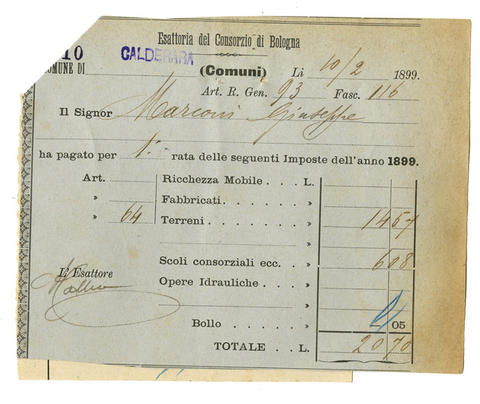 Esattoria del Consorzio di Bologna
10
COMUNE DI CALDERARA (Comuni) Li 10/2 1899.
Art. R. Gen. 93 Fasc. 116
Il Signor Marconi Giuseppe
ha pagato per 1ª rata delle seguenti Imposte dell'anno 1899.
Art. Ricchezza Mobile . . . L.
» Fabbricati. . . . . »
» 64 Terreni. . . . . . » 1457
Scoli consorziali ecc. . . » 608
L'Esattore Opere Idrauliche . . . . »
Bollo . . . . » 05
TOTALE . . L. 2070